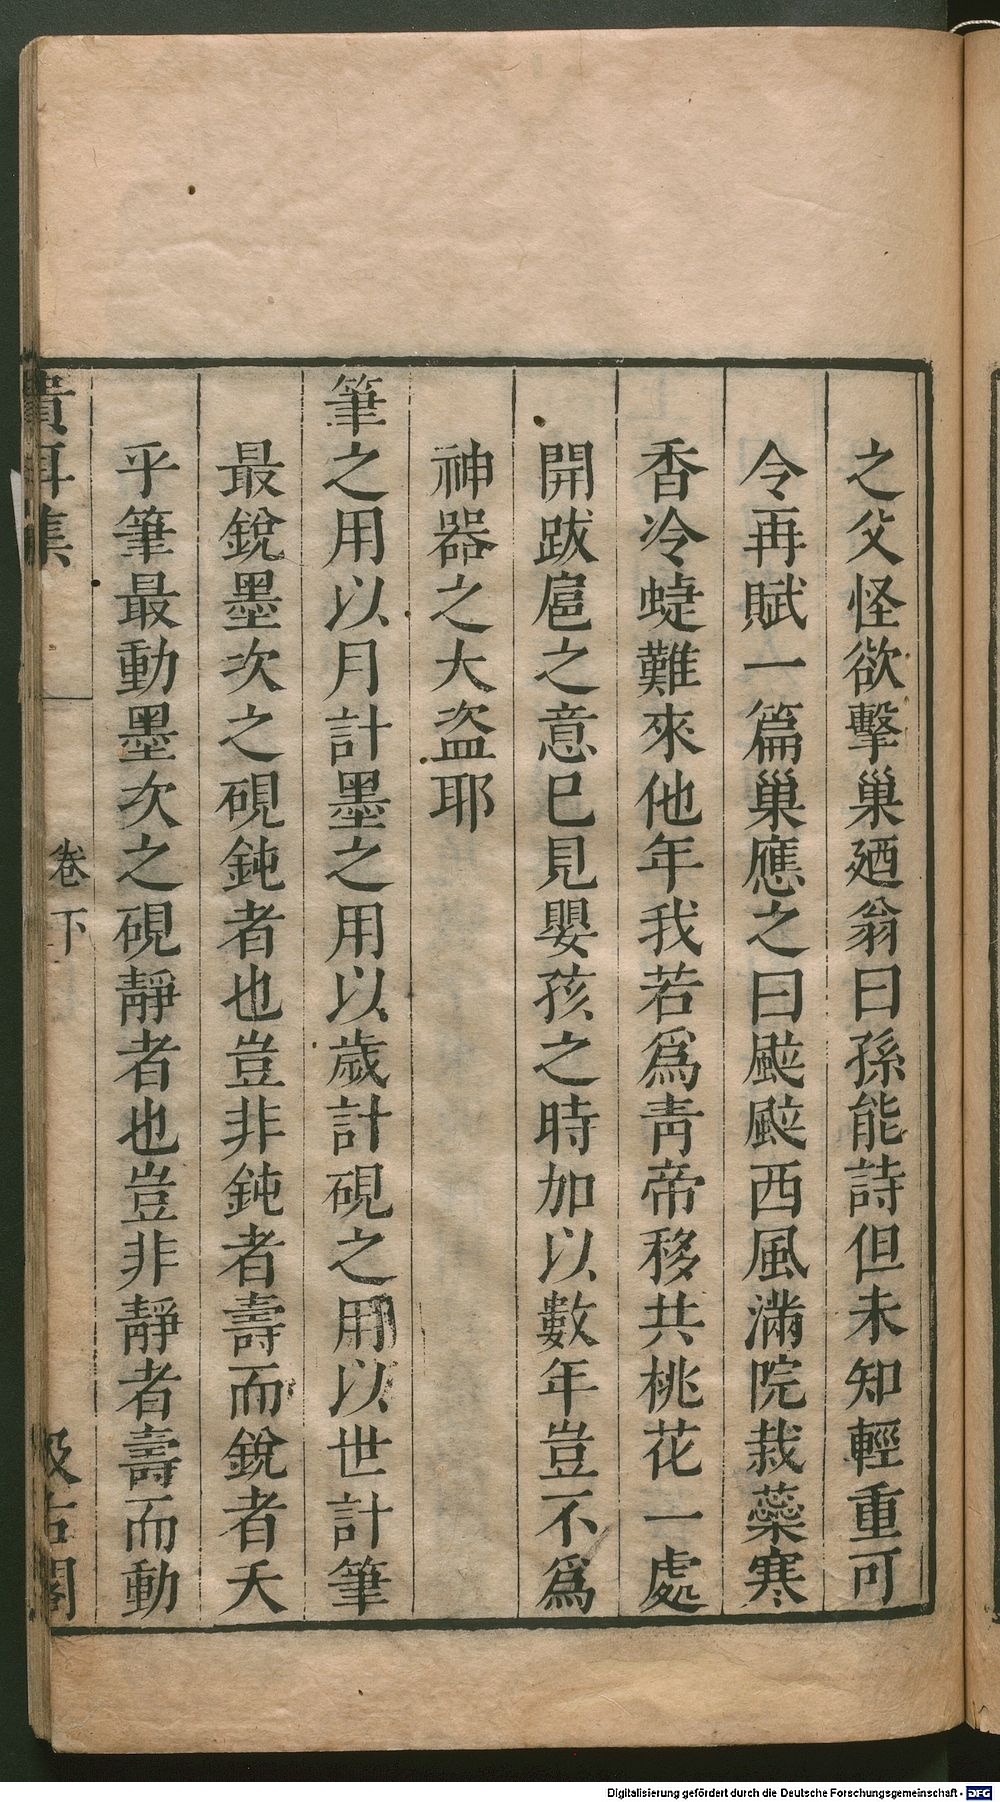 之父怪欲擊巢廼翁曰孫能詩但未知輕重可
令再賦一篇巢應之曰颼颼西風滿院栽蘂寒
香冷蜨難來他年我若爲靑帝移共桃花一處
開跋扈之意已見嬰孩之時加以數年豈不爲
神器之大盜耶
筆之用以月計墨之用以歲計硯之用以世計筆
最銳墨次之硯鈍者也豈非鈍者壽而銳者夭
乎筆最動墨次之硯靜者也豈非靜者壽而動
貴耳集
卷下
汲古閣
Digitalisierung gefördert durch die Deutsche Forschungsgemeinschaft - DFG